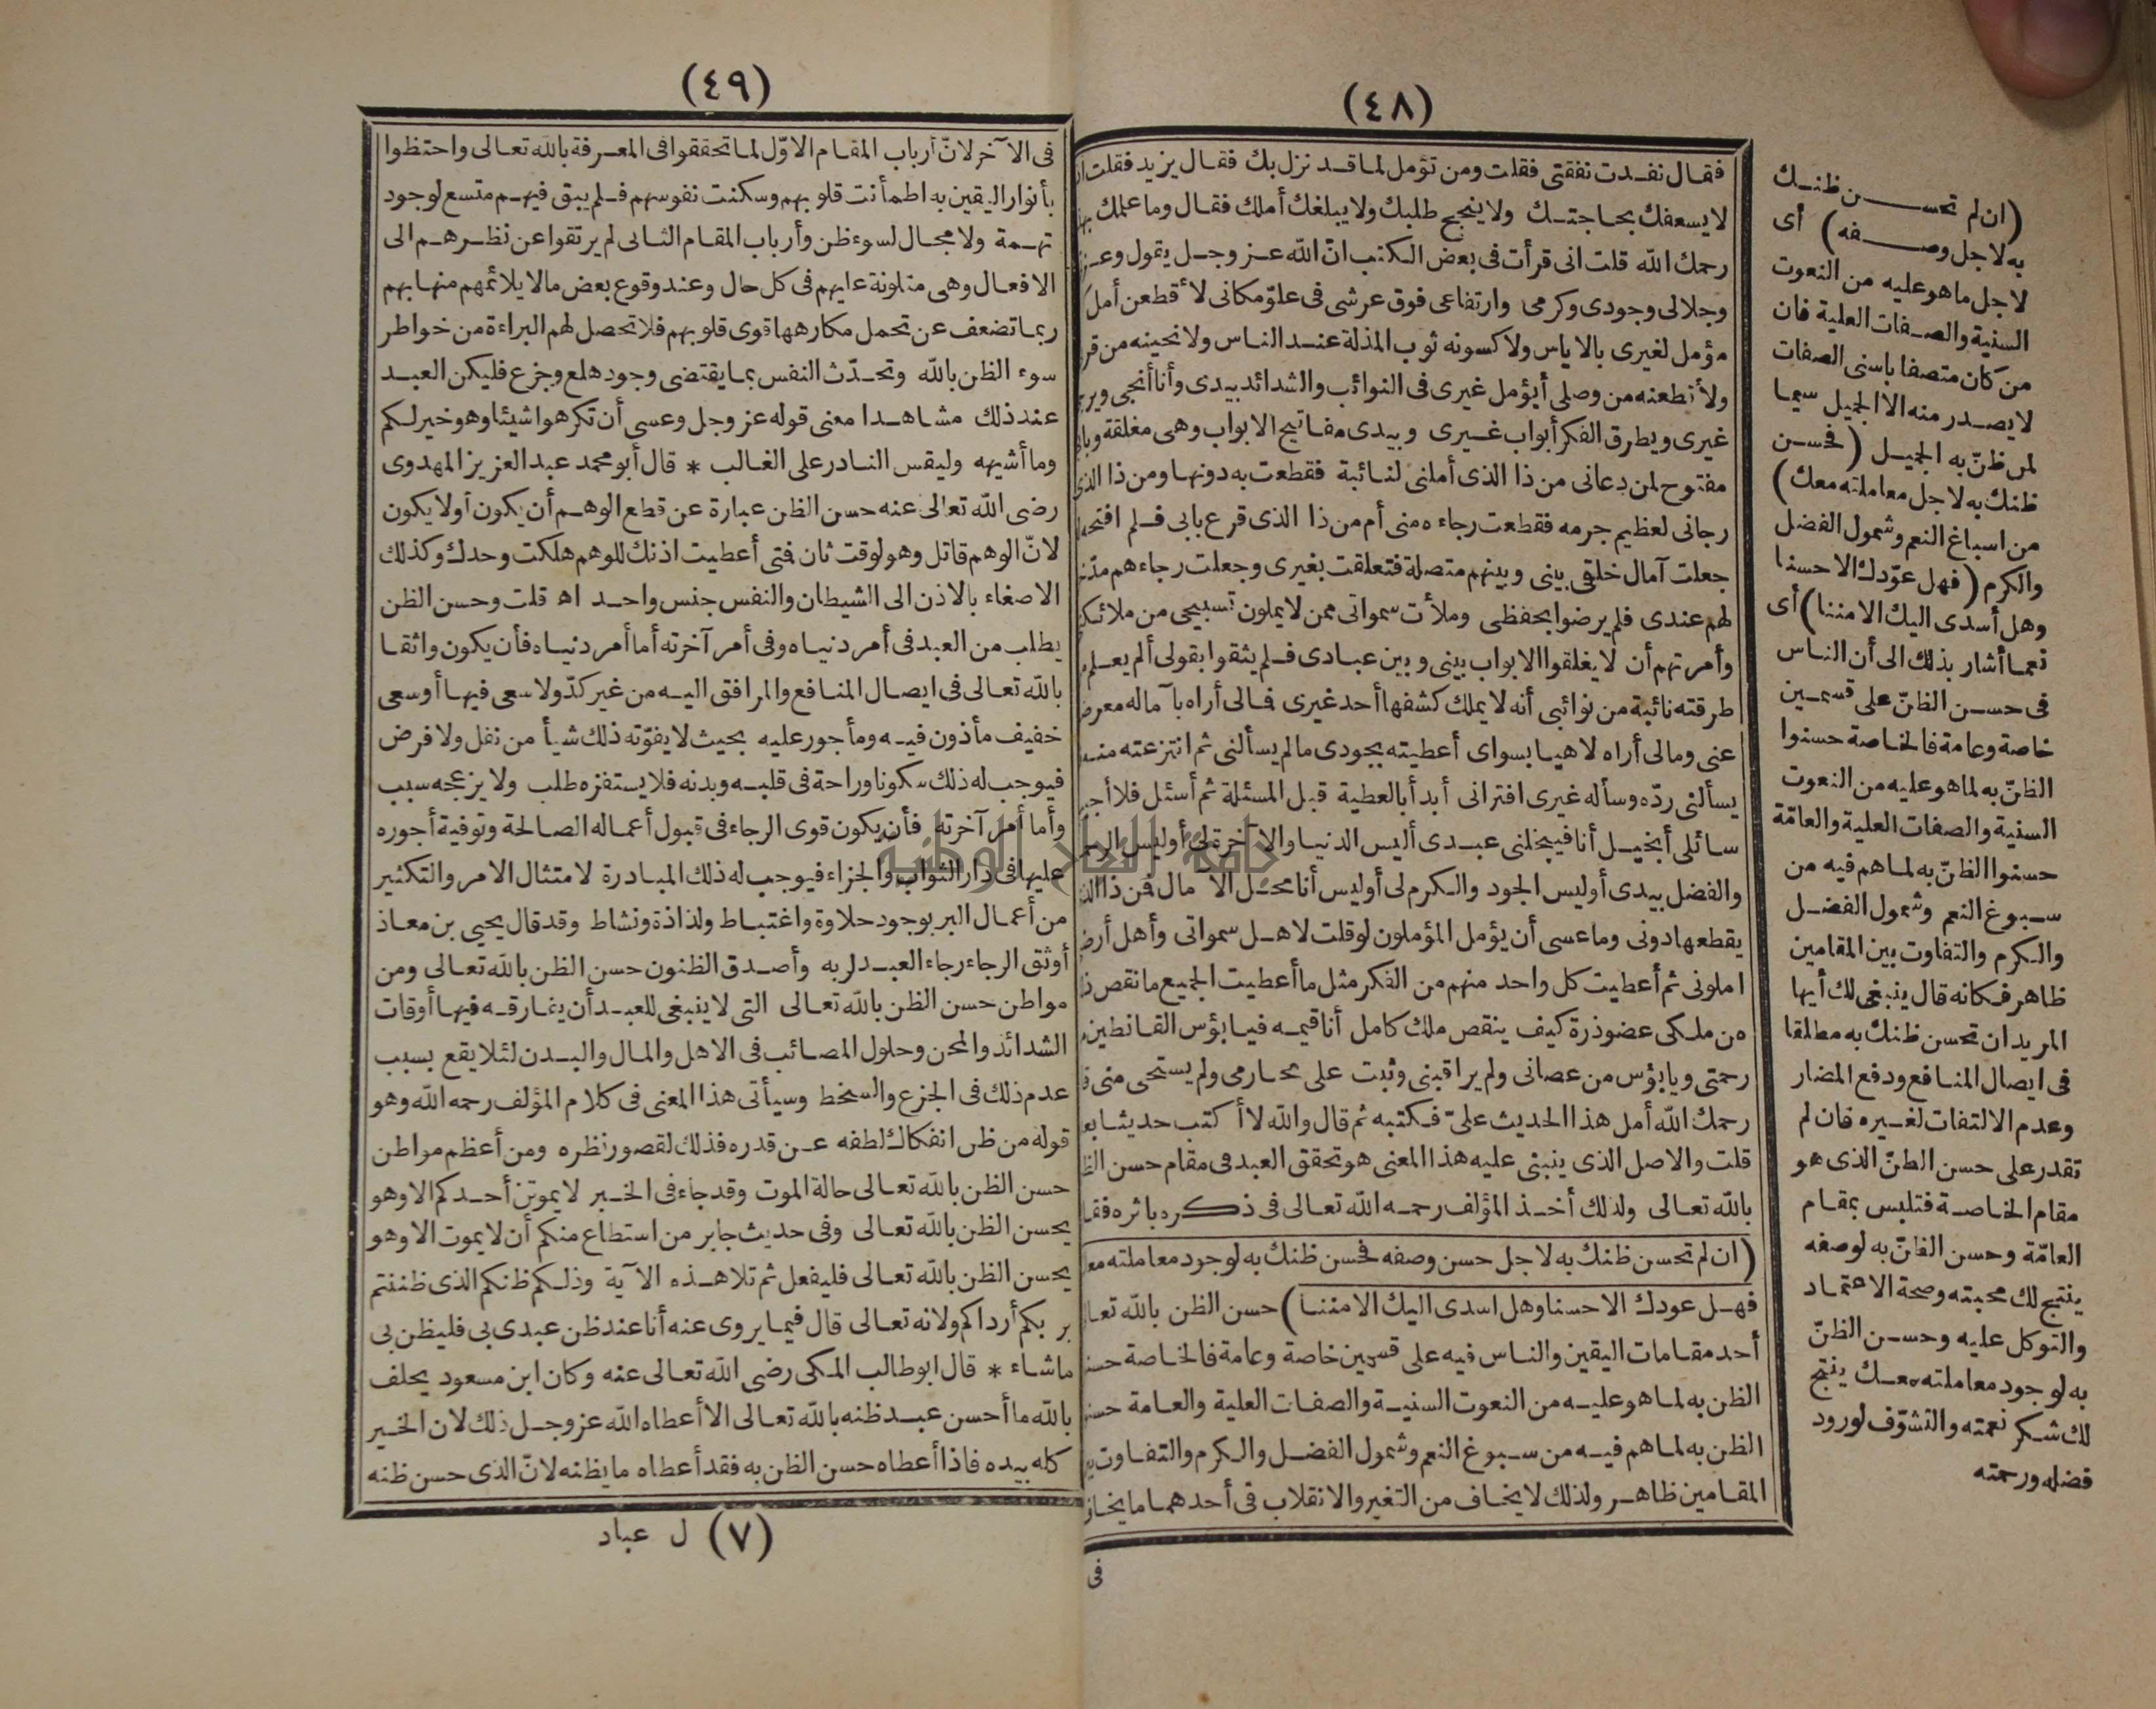 (٤٨)
فقال نفدت نفقتى فقلت ومن تؤمل لما قد نزل بك فقال يزيد فقلت
لا يسعفك بحاجتك ولا ينجح طلبك ولا يبلغك أملك فقال وما علمك
رحمك الله قلت انى قرأت فى بعض الكتب انّ الله عز وجل يقول
وجلالى وجودى وكرمى وارتفاعى فوق عرشى فى علوّ مكانى لأقطعن أمل
مؤمل لغيرى بالاياس ولا كسونه ثوب المذلة عند الناس ولا نحينه من
ولأ قطعنه من وصلى أيؤمل غيرى فى النوائب والشدائد بيدى وأنا أنجى
غيرى ويطرق الفكر أبواب غيرى وبيدى مفاتيح الابواب وهى مغلقة
مفتوح لمن دعانى من ذا الذى أملنى لنائبة فقطعت به دونها ومن ذا الذى
رجانى لعظيم جرمه فقطعت رجاءه منى أم من ذا الذى قرع بابى فلم
جعلت آمال خلقى بينى وبينهم متصلة فتعلقت بغيرى وجعلت رجاءهم
لهم عندى فلم يرضوا بحفظى وملأت سمواتى ممن لا يملون تسبيحى من
وأمرتهم أن لا يغلقوا الابواب بينى وبين عبادى فلم يثقوا بقولى ألم يعلم
طرقته نائبة من نوائبى أنه لا يملك كشفها أحد غيرى فمالى أراه بآماله
عنى ومالى أراه لاهيا بسواى أعطيته بجودى مالم يسألنى ثم انتزعته
يسألنى ردّه وسأله غيرى افترانى أبدأ بالعطية قبل المسئلة ثم أسئل فلا
سائلى أبخيل أنا فيبخلنى عبدى أليس الدنيا والآخرة لى أوليس
والفضل بيدى أوليس الجود والكرم لى أوليس أنا محل الآمال فمن ذا
يقطعها دونى وما عسى أن يؤمل المؤملون لو قلت لاهل سمواتى وأهل
املونى ثم أعطيت كل واحد منهم من الفكر مثل ما أعطيت الجميع ما نقص
من ملكى عضو ذرة كيف ينقص ملك كامل أنا قيمه فيا بؤس القانطين
رحمتى ويا بؤس من عصانى ولم يراقبنى وثبت على محارمى ولم يستحى منى
رحمك الله أمل هذا الحديث علىّ فكتبه ثم قال والله لا أكتب حديثا
قلت والاصل الذى ينبنى عليه هذا المعنى هو تحقق العبد فى مقام حسن
بالله تعالى ولذلك أخذ المؤلف رحمه الله تعالى فى ذكره باثره
(ان لم تحسن ظنك به لاجل حسن وصفه فحسن ظنك به لوجود معاملته
فهل عودك الاحسنا وهل اسدى اليك الامننا) حسن الظن بالله
أحد مقامات اليقين والناس فيه على قسمين خاصة وعامة فالخاصة
الظن به لما هو عليه من النعوت السنية والصفات العلية والعامة
الظن به لما هم فيه من سبوغ النعم وشمول الفضل والكرم والتفاوت
المقامين ظاهر ولذلك لا يخاف من التغير والانقلاب فى أحدهما ما
فى
(ان لم تحسن ظنك
به لاجل وصفه) أى
لاجل ما هو عليه من النعوت
السنية والصفات العلية فان
من كان متصفا باسنى الصفات
لا يصدر منه الا الجميل سيما
لمن ظنّ به الجميل (فحسن
ظنك به لاجل معاملته معك)
من اسباغ النعم وشمول الفضل
والكرم (فهل عوّدك الاحسنا
وهل أسدى اليك الامننا) أى
نعما أشار بذلك الى أن الناس
فى حسن الظنّ على قسمين
خاصة وعامة فالخاصة حسنوا
الظنّ به لما هو عليه من النعوت
السنية والصفات العلية والعامّة
حسنوا الظنّ به لما هم فيه من
سبوغ النعم وشمول الفضل
والكرم والتفاوت بين المقامين
ظاهر فكانه قال ينبغى لك أيها
المريد ان تحسن ظنك به مطلقا
فى ايصال المنافع ودفع المضار
وعدم الالتفات لغيره فان لم
تقدر على حسن الظنّ الذى هو
مقام الخاصة فتلبس بمقام
العامّة وحسن الظنّ به لوصفه
ينتج لك محبته وصحة الاعتماد
والتوكل عليه وحسن الظنّ
به لوجود معاملته معك ينتج
لك شكر نعمته والتشوّف لورود
فضله ورحمته
(٤٩)
فى الآخر لانّ أرباب المقام الاوّل لما تحققوا فى المعرفة بالله تعالى واحتظوا
بأنوار اليقين به اطمأنت قلوبهم وسكنت نفوسهم فلم يبق فيهم متسع لوجود
تهمة ولا مجال لسوء ظن وأرباب المقام الثانى لم يرتقوا عن نظرهم الى
الافعال وهى متلونة عليهم فى كل حال وعند وقوع بعض ما لا يلائمهم منها بهم
ربما تضعف عن تحمل مكارهها قوى قلوبهم فلا تحصل لهم البراءة من خواطر
سوء الظن بالله وتحدّث النفس بما يقتضى وجود هلع وجزع فليكن العبد
عند ذلك مشاهدا معنى قوله عز وجل وعسى أن تكرهوا شيئا وهو خير لكم
وما أشبهه وليقس النادر على الغالب * قال أبو محمد عبد العزيز المهدوى
رضى الله تعالى عنه حسن الظن عبارة عن قطع الوهم أن يكون أولا يكون
لانّ الوهم قاتل وهو لوقت ثان فمتى أعطيت اذنك للوهم هلكت وحدك وكذلك
الاصغاء بالاذن الى الشيطان والنفس جنس واحد اه قلت وحسن الظن
يطلب من العبد فى أمر دنياه وفى أمر آخرته أما أمر دنياه فأن يكون واثقا
بالله تعالى فى ايصال المنافع والمرافق اليه من غير كدّ ولا سعى فيها أو سعى
خفيف مأذون فيه ومأجور عليه بحيث لا يفوّته ذلك شيأ من نفل ولا فرض
فيوجب له ذلك سكونا وراحة فى قلبه وبدنه فلا يستفزه طلب ولا يزعجه سبب
وأما أمر آخرته فأن يكون قوى الرجاء فى قبول أعماله الصالحة وتوفية أجوره
عليها فى دار الثواب والجزاء فيوجب له ذلك المبادرة لامتثال الامر والتكثير
من أعمال البر بوجود حلاوة واغتباط ولذاذة ونشاط وقد قال يحيى بن معاذ
أوثق الرجاء رجاء العبد لربه وأصدق الظنون حسن الظن بالله تعالى ومن
مواطن حسن الظن بالله تعالى التى لا ينبغى للعبد أن يفارقه فيها أوقات
الشدائد والمحن وحلول المصائب فى الاهل والمال والبدن لئلا يقع بسبب
عدم ذلك فى الجزع والسخط وسيأتى هذا المعنى فى كلام المؤلف رحمه الله وهو
قوله من ظن انفكاك لطفه عن قدره فذلك لقصور نظره ومن أعظم مواطن
حسن الظن بالله تعالى حالة الموت وقد جاء فى الخبر لا يموتن أحدكم الا وهو
يحسن الظن بالله تعالى وفى حديث جابر من استطاع منكم أن لا يموت الا وهو
يحسن الظن بالله تعالى فليفعل ثم تلا هذه الآية وذلكم ظنكم الذى ظننتم
بربكم أرداكم ولانه تعالى قال فيما يروى عنه أنا عند ظن عبدى بى فليظن بى
ما شاء * قال ابو طالب المكى رضى الله تعالى عنه وكان ابن مسعود يحلف
بالله ما أحسن عبد ظنه بالله تعالى الا أعطاه الله عز وجل ذلك لان الخير
كله بيده فاذا أعطاه حسن الظن به فقد أعطاه ما يظنه لانّ الذى حسن ظنه
(٧) ل عباد